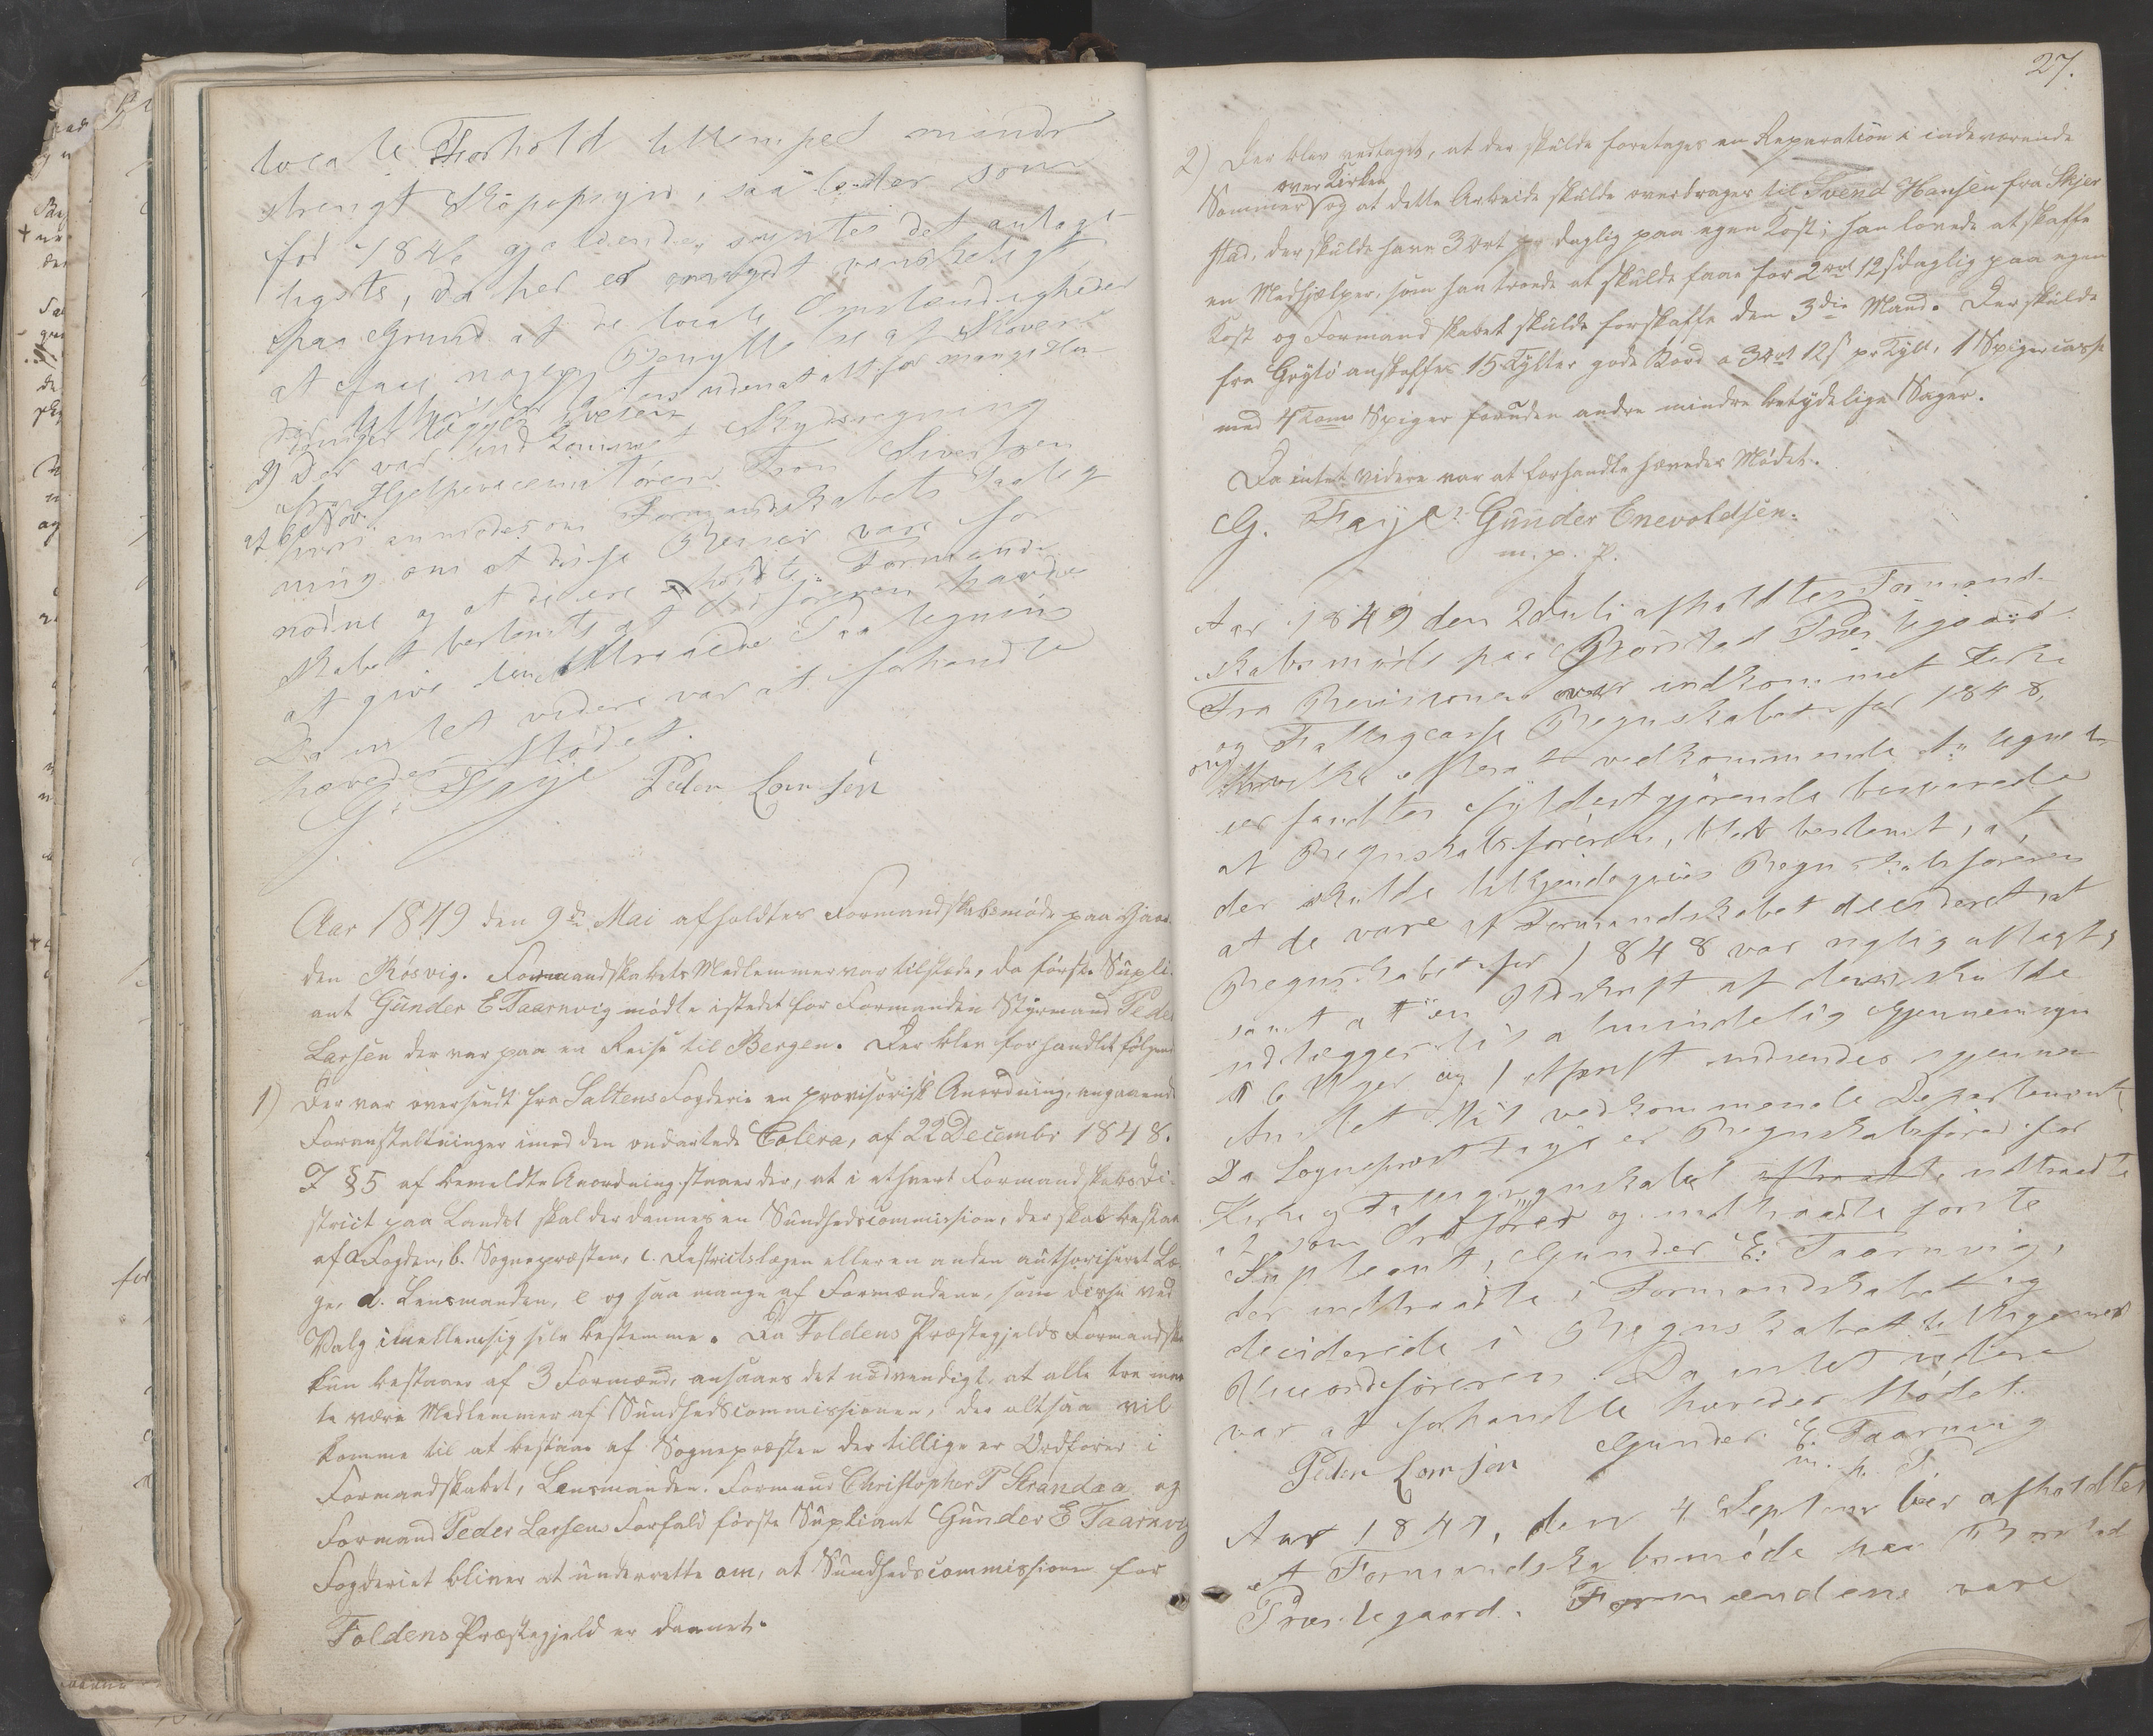 locale Forhold tillempet mindre
strengt Skovopsyn, saaleder som
for 1846 gjældende, ansaaes det antage-
ligste, da her er meget vanskeligt
paa Grund af de locale Omstændigheder
at faae nogen Benyttelse af Skoven
udenat alt for mange Hu-
2) Der var indkommet Skydsregning
fra Hjelpevaccinatøren Tron Sivertsen
hvori anmodes om Formandskabets Paateg-
ning om at disse Reiser vare for-
nødne og at de ere Formand-
skabet bestemte at Ordføreren havde
at give den Paategning
Da intet videre var at forhandle
hævedes Mødet.
G. Faÿe Peder Larsen
Aar 1849 den 9de Mai afholdtes Formandskabsmøde paa Gaar-
den Røsvig. Formandskabets Medlemmer var tilstæde, da første Supli-
ant Gunder E Taarnvig mødte istedet for Formanden Styrmand Peder
Larsen der var paa en Reise til Bergen. Der blev forhandlet følgende
1) Der var oversendt fra Saltens Fogderie en provisorisk Anordning, angaaende
Foranstaltninger imod den ondartede Colera, af 22 Decembr 1848.
I §5 af bemeldte Anordning staaer der, at i ethvert Formandskabsdi-
strict paa Landet skal der dannes en Sundhedscommission, der skal bestaae
af a Fogden, b. Sognepræsten, c. Destrictslægen eller en anden authoriseret Læ-
ge, d. Lensmanden, e og saa mange af Formændene, som disse ved
Valg imellem sig selv bestemme. Da Foldens Præstegjelds Formandskab
kun bestaaer af 3 Formænd, ansaaes det nødvendigt, at alle tre maa-
te være Medlemmer af Sundhedscommissionen, der altsaa vil
komme til at bestaae af Sognepræsten der tillige er Ordfører i
Formandskabet, Lensmanden. Formand Christopher P Strandaa og
Formand Peder Larsens Forfald første Supliant Gunder E Taarnvig
Fogderiet bliver at underrette om, at Sundhedscommissionen for
Foldens Præstegjeld er dannet.
27.
2) Der blev vedtaget, at der skulde foretages en Reparation i indeværende
over Kirken
Sommer og at dette Arbeide skulde overdrages til Svend Hansen fra Skjer
stad, der skulde have 3 Ort daglig paa egen Kost; han lovede at skaffe
en Medhjælper, som han troede at skulde faae for 2 Ort 12 s daglig paa egen
Kost og Formandskabet skulde forskaffe den 3die Mand. Der skulde
fra Grytø anskaffes 15 Tylter gode Bord a 3 Ort 12 s pr Tylt, 1 Spigercasse
med Spiger foruden andre mindre betydelige Sager.
Da intet videre var at forhandle hævedes Mødet.
G. Faÿe. Gunder Enevoldsen.
m. p. P.
Aar 1849 den 2 Juli afholdtes Formand-
skabsmøde paa Børstad Præstegaard
Fra Revisionen var indkommet Kirke
og Fattigcasse Regnskabet for 1848,
hvilke efterat vedkommende Antegnelser
fandtes fyldestgjørende besvarede
af Regnskabsføreren, blev bestemt, at
der skulde tilkjendegives Regnskabsføreren
at de vare af Formandskabet decideret at
Regnskabet for 1848 var rigtig aflagt,
samt at en Udskrift af dem skulde
udlægges til almindelig Gjennemsyn
og 1 Udskrift indsendes gjennem
Amtet til vedkommende Departement
Da Sognepræst Faÿe er Regnskabsfører for
Kirke og Fattigregnskabet udtraadte
som Ordfører og indtraadte første
Supleant, Gunder E. Taarnvig,
der indtraadte i Formandskabet og
deciderede i Regnskabet tilligemed
Viceordføreren. Da intet videre
var at forhandle hævedes Mødet.
Peder Larsen Gunder E. Taarnvig
m. p. P.
Aar 1849, den 4 September afholdtes
et Formandskabsmøde paa Børstad
Præstegaard. Formændene vare